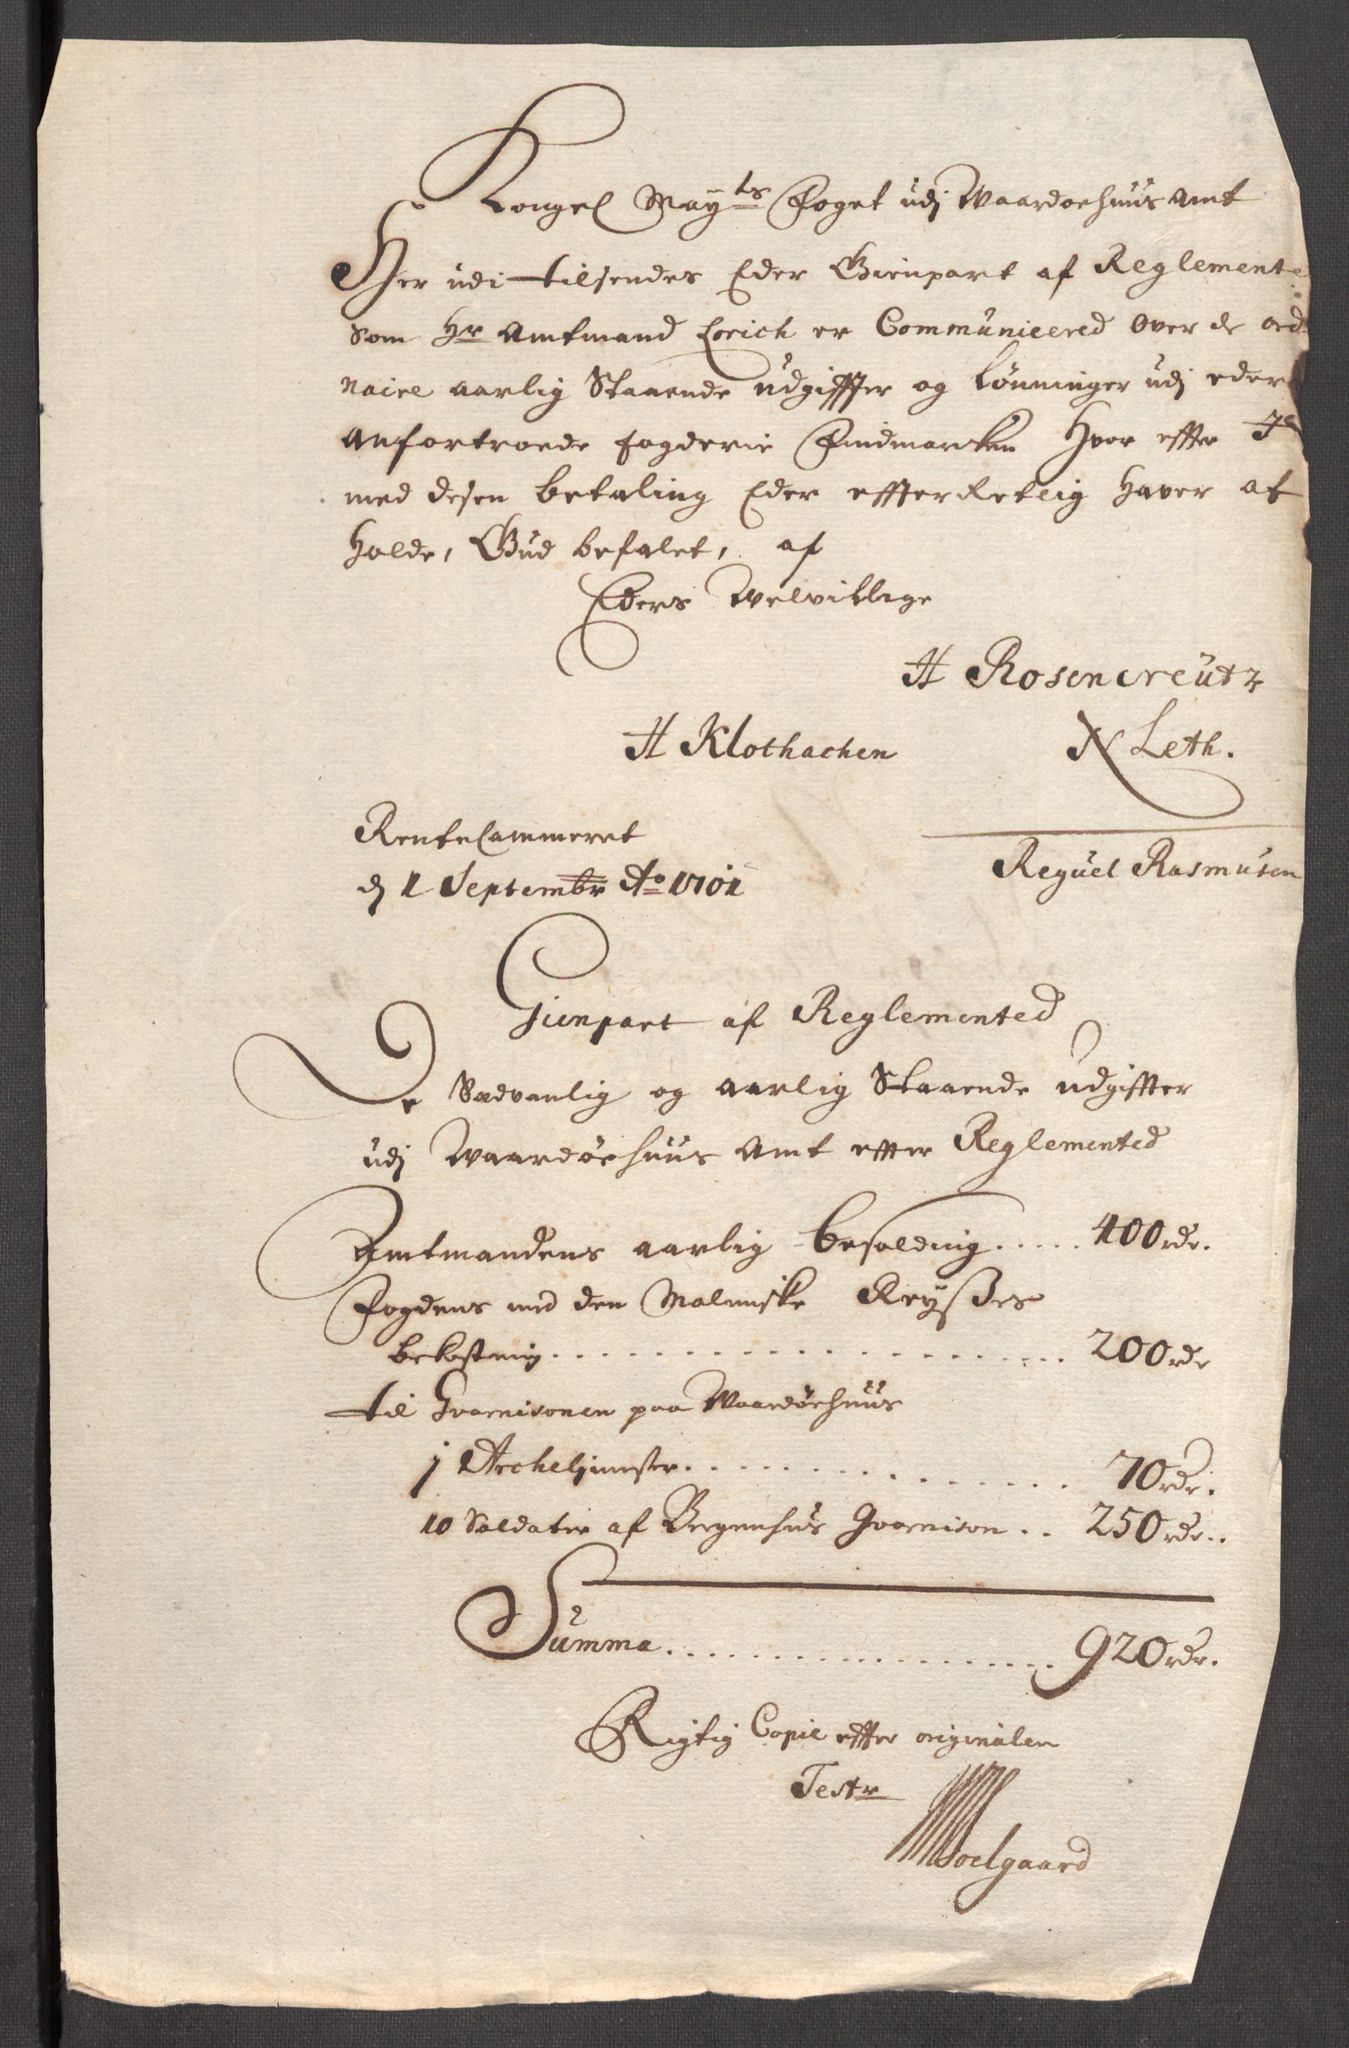 Kongel Maÿts Foget udj Waardøehuus Amt
Her udi tilsendes Eder Gienpart af Reglemente
Som Hr Amtmand Lorich er Communicered over de ord
naire aarlig Staaende udgiffter og Lønninger udj eders
anfortroede fogderie Findmarcken Hvor effter I
med desen betaling Eder effterRetlig haver at
holde, Gud befalet, af
Eders Welvillige
H Rosencreutz
H Klothachen N Leth.
RenteCammeret
Reguel Rasmusen
d 1 Septembr Ao 1701
Gienpart af Reglemented
De Sædvanlig og aarlig Staaende udgiffter
udj Waardøehuus Amt effter Reglemented
Amtmandens aarlig besolding ..... 400 rdr.
Fogdens med den Malmiske Reyßes
bekostning ..... 200 rdr
til Gvarnisonen paa Waardøehuus
1 Archeljmester ..... 70 rdr.
10 Soldater af Bergenhus Gvarnison .. 250 rdr..
Summa ..... 920 rdr.
Rigtig Copie effter originalen
Testr
Soelgaard